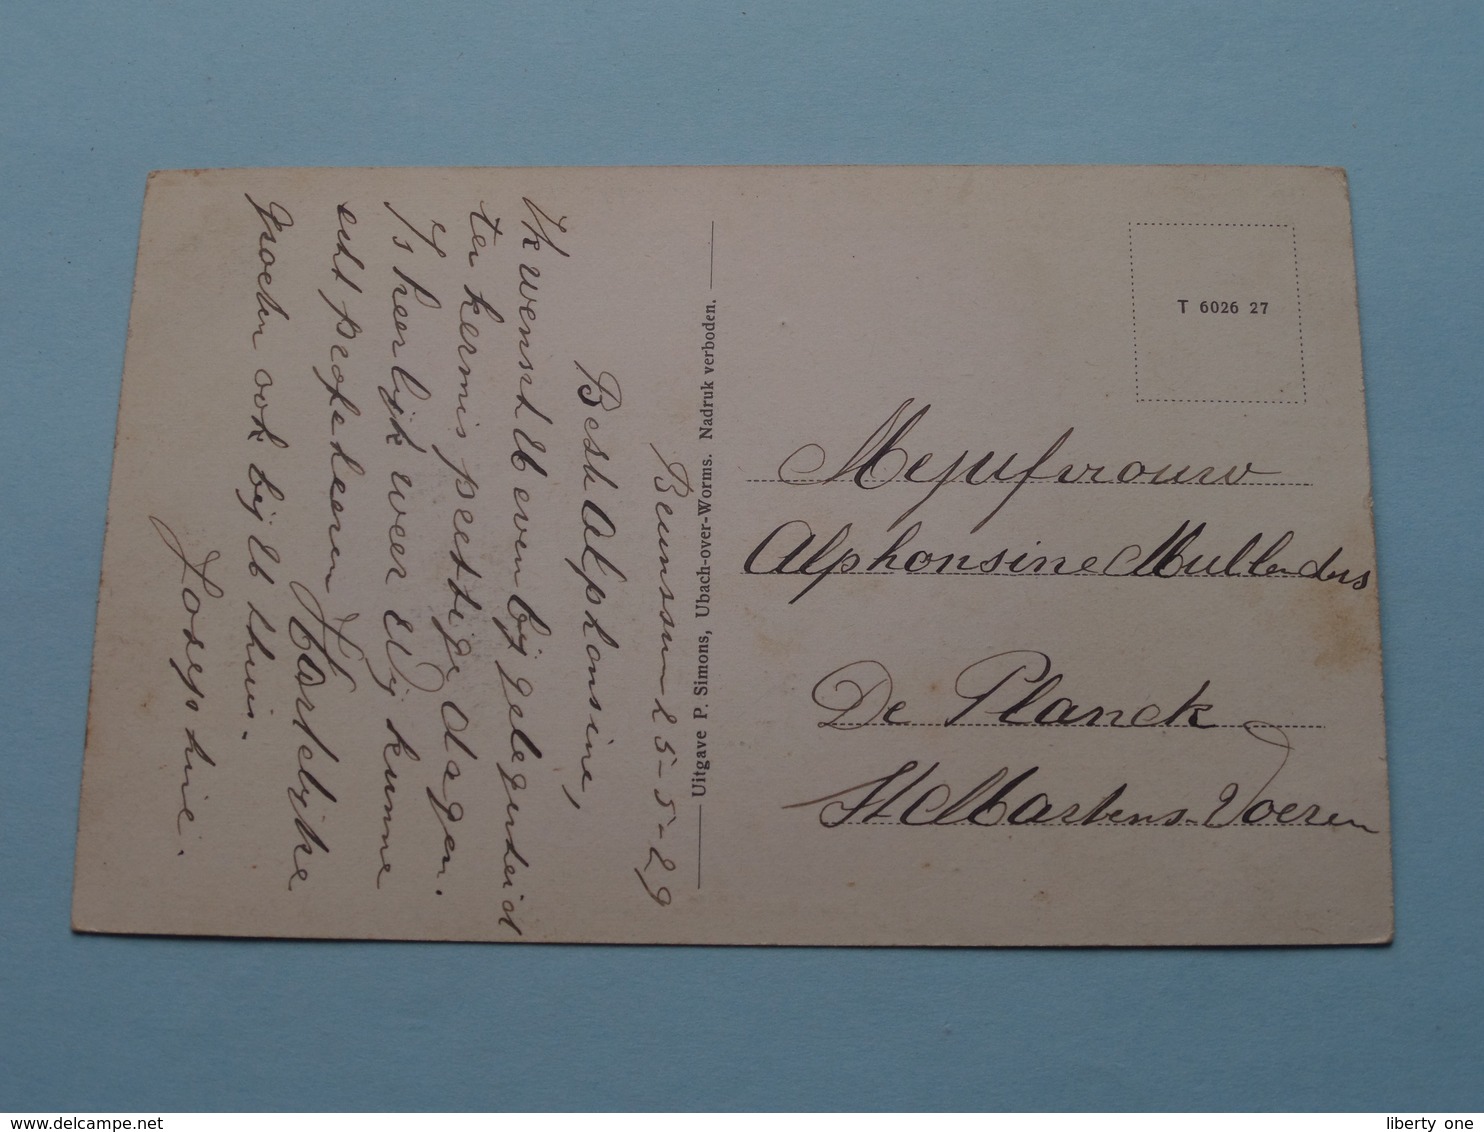 Brunssum 25-5-29
Beste Alphonsine,
Ik wensch U even bij gelegenheid
ter kermis prettige dagen.
Is heerlijk weer Wij kunne
echt profiteeren Hartelijke
groeten ook bij U thuis.
Josephine.
Uitgave P. Simons, Ubach-over-Worms. Nadruk verboden.
T 6026 27
Mejufvrouw
Alphonsine Mullenders
De Planck
St Martens-Voeren
delcampe.net
liberty one